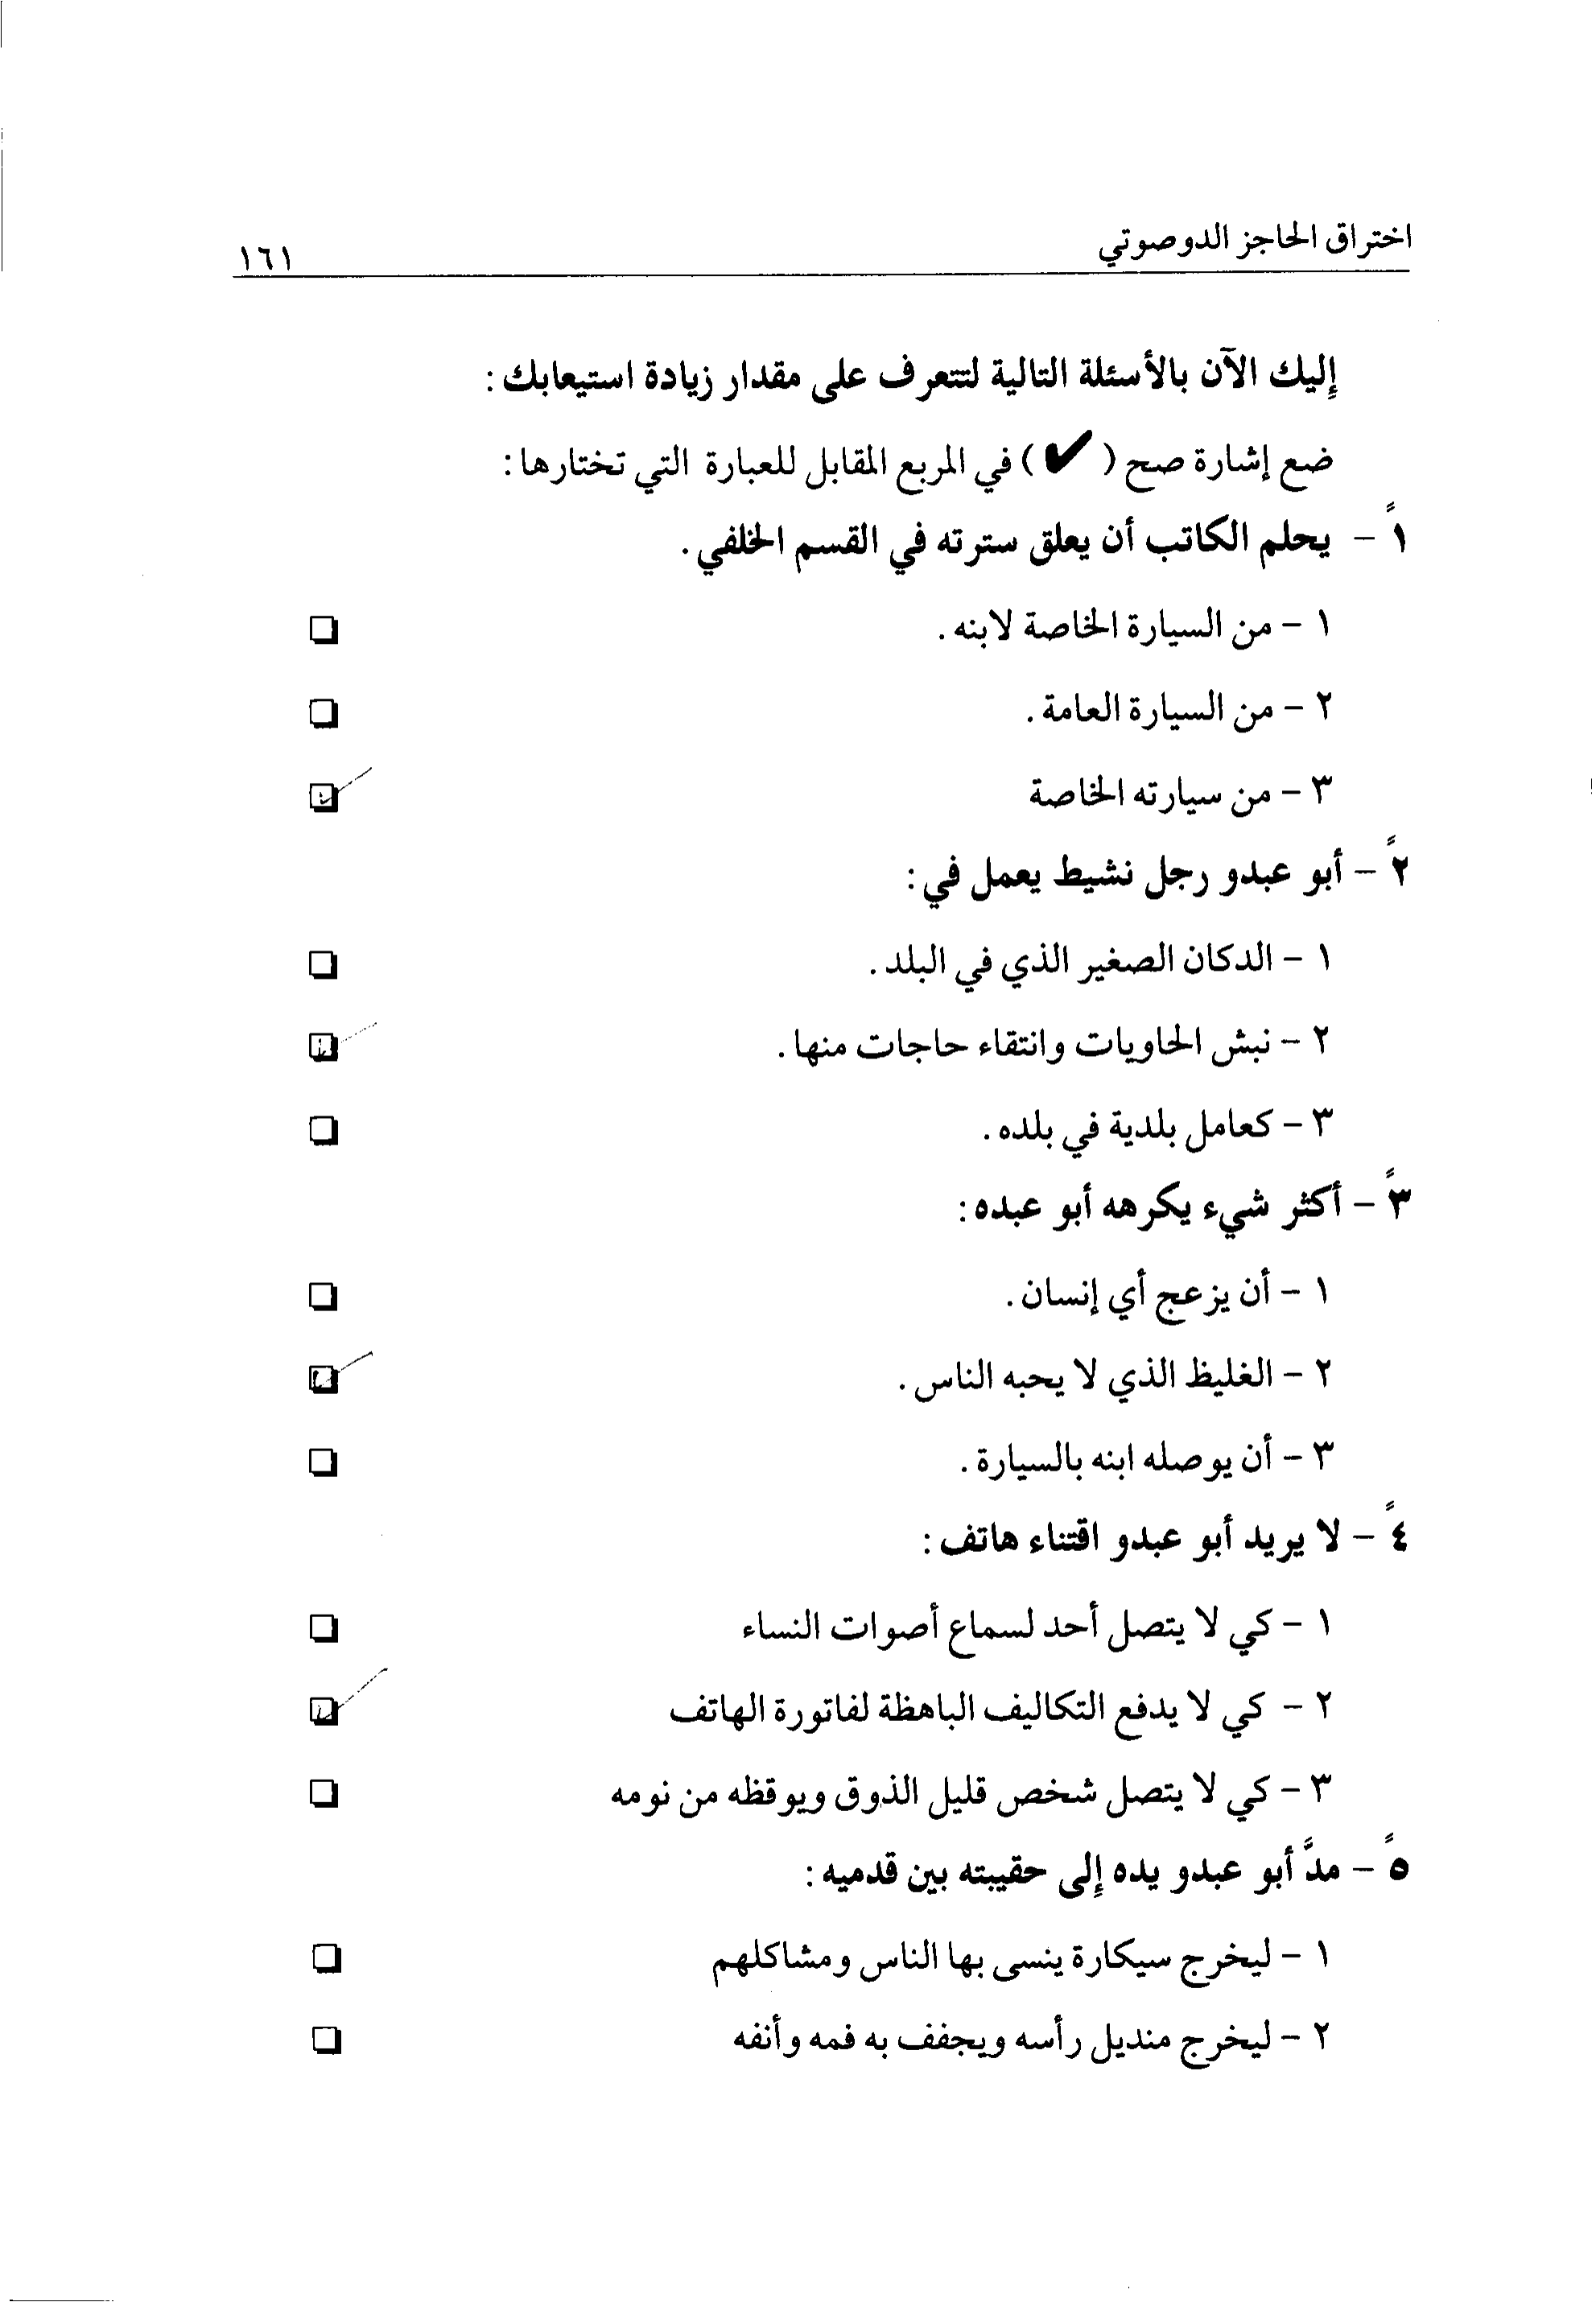 اختراق الحاجز الدوصوتي
١٦١
إليك الآن بالأسئلة التالية لتتعرف على مقدار زيادة استيعابك:
ضع إشارة صح (✔) في المربع المقابل للعبارة التي تختارها:
١ً - يحلم الكاتب أن يعلق سترته في القسم الخلفي.
١ - من السيارة الخاصة لابنه. ❏
٢ - من السيارة العامة. ❏
٣ - من سيارته الخاصة ☑
٢ً - أبو عبدو رجل نشيط يعمل في:
١ - الدكان الصغير الذي في البلد. ❏
٢ - نبش الحاويات وانتقاء حاجات منها. ☑
٣ - كعامل بلدية في بلده. ❏
٣ً - أكثر شيء يكرهه أبو عبده:
١ - أن يزعج أي إنسان. ❏
٢ - الغليظ الذي لا يحبه الناس. ☑
٣ - أن يوصله ابنه بالسيارة. ❏
٤ً - لا يريد أبو عبدو اقتناء هاتف:
١ - كي لا يتصل أحد لسماع أصوات النساء ❏
٢ - كي لا يدفع التكاليف الباهظة لفاتورة الهاتف ☑
٣ - كي لا يتصل شخص قليل الذوق ويوقظه من نومه ❏
٥ً - مدَّ أبو عبدو يده إلى حقيبته بين قدميه:
١ - ليخرج سيكارة ينسى بها الناس ومشاكلهم ❏
٢ - ليخرج منديل رأسه ويجفف به فمه وأنفه ❏